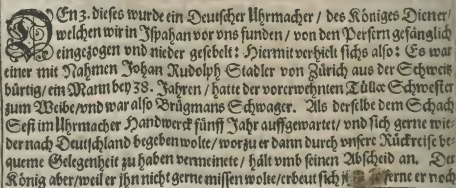 DEn 3. dieses wurde ein Deutscher Uhrmacher / des Königes Diener /
welchen wir in Ispahan vor vns funden / von den Persern gefänglich
eingezogen vnd nieder gesebelt: Hiermit verhielt sichs also: Es war
einer mit Nahmen Johan Rudolph Stadler von Zürich aus der Schweitz
bürtig / ein Mann bey 38. Jahren / hatte der vorerwehnten Tüllæ Schwester
zum Weibe / vnd war also Brügmans Schwager. Als derselbe dem Schach
Sefi im Uhrmacher Handwerck fünff Jahr auffgewartet / vnd sich gerne wie-
der nach Deutschland begeben wolte / worzu er dann durch vnsere Rückreise be-
queme Gelegenheit zu haben vermeinete / hält vmb seinen Abscheid an. Der
König aber / weil er jhn nicht gerne missen wolte / erbeut sich ferne er noch